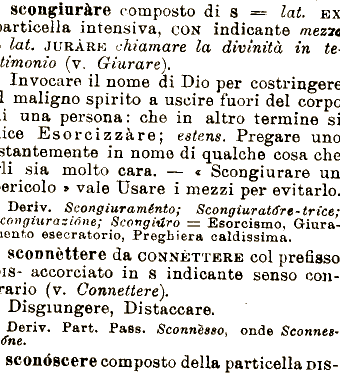 scongiuràre composto di s = lat. EX
particella intensiva, CON indicante mezzo
lat. JURÀRE chiamare la divinità in te-
timonio (v. Giurare).
Invocare il nome di Dio per costringere
l maligno spirito a uscire fuori del corpo
i una persona: che in altro termine si
ice Esorcizzàre; estens. Pregare uno
stantemente in nome di qualche cosa che
li sia molto cara. — « Scongiurare un
ericolo » vale Usare i mezzi per evitarlo.
Deriv. Scongiuraménto; Scongiuratóre-trice;
congiurazióne; Scongiúro = Esorcismo, Giura-
ento esecratorio, Preghiera caldissima.
sconnèttere da CONNÈTTERE col prefisso
DIS- accorciato in s indicante senso con-
rario (v. Connettere).
Disgiungere, Distaccare.
Deriv. Part. Pass. Sconnèsso, onde Sconnes-
óne.
sconóscere composto della particella DIS-